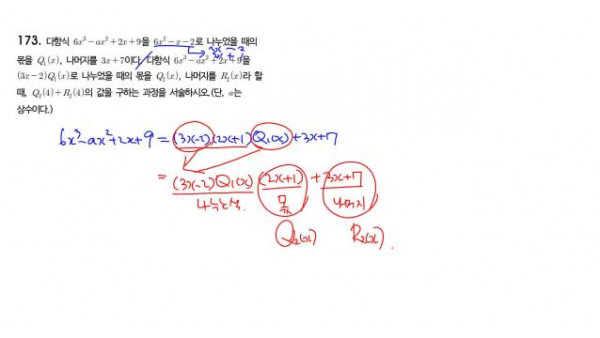 173. 다항식 6x³-ax²+2x+9를 6x²-x-2로 나누었을 때의
몫을 Q₁(x), 나머지를 3x+7이다. 다항식 6x³-ax²+2x+9를
(3x-2)Q₁(x)로 나누었을 때의 몫을 Q₂(x), 나머지를 R₂(x)라 할
때, Q₂(4)+R₂(4)의 값을 구하는 과정을 서술하시오. (단, a는
상수이다.)
6x³-ax²+2x+9 = (3x-2)(2x+1)Q₁(x)+3x+7
= (3x-2)Q₁(x) (2x+1) + 3x+7
나누는식 몫 나머지
Q₂(x) R₂(x).